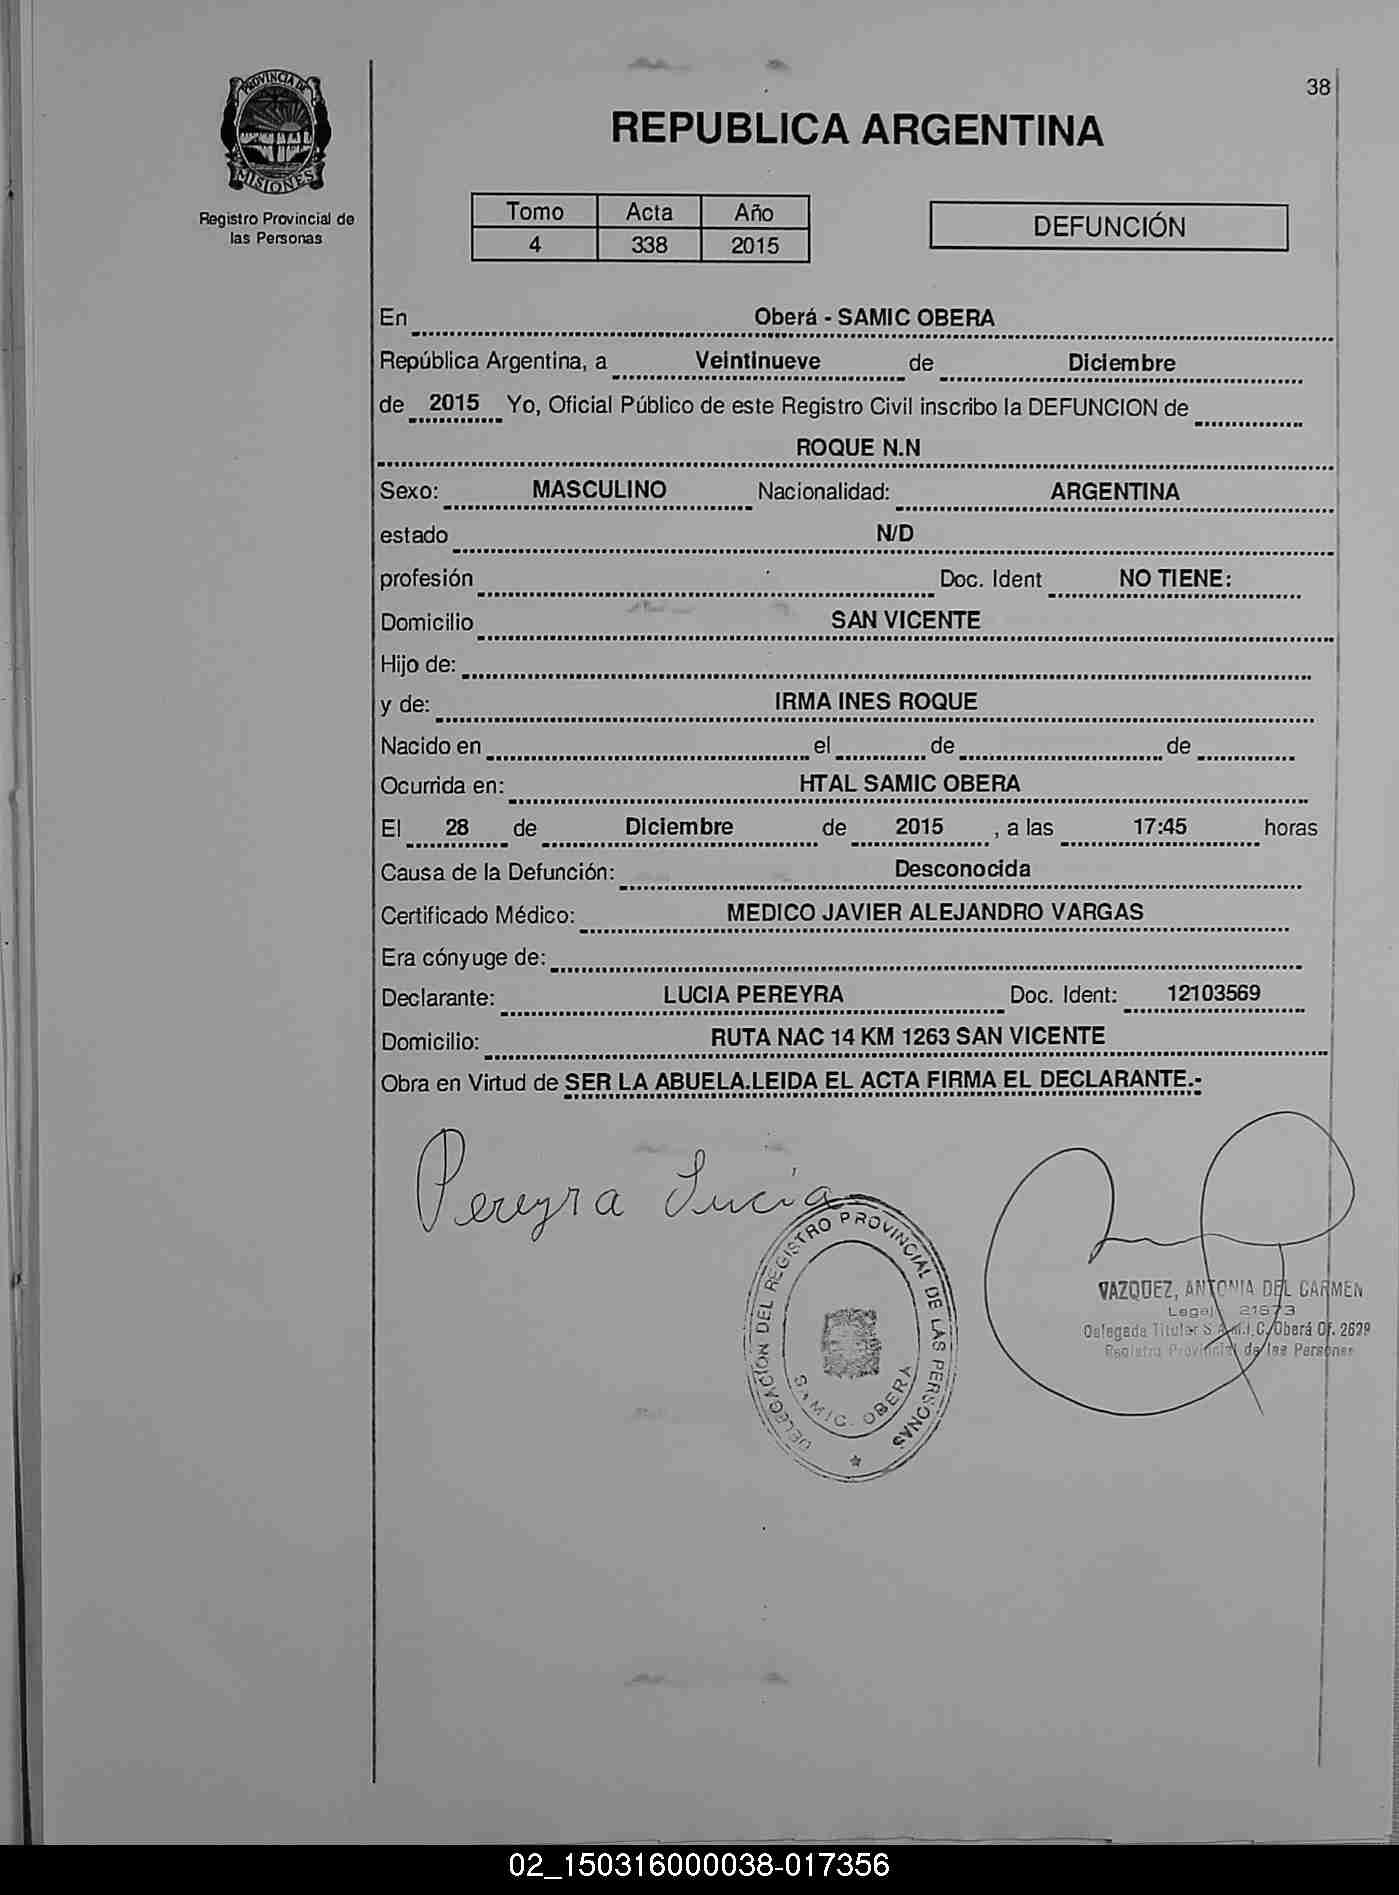 38
PROVINCIA DE
MISIONES
Registro Provincial de
las Personas
REPUBLICA ARGENTINA
Tomo Acta Año
4 338 2015
DEFUNCIÓN
En Oberá - SAMIC OBERA
República Argentina, a Veintinueve de Diciembre
de 2015 Yo, Oficial Público de este Registro Civil inscribo la DEFUNCION de
ROQUE N.N
Sexo: MASCULINO Nacionalidad: ARGENTINA
estado N/D
profesión Doc. Ident NO TIENE:
Domicilio SAN VICENTE
Hijo de:
y de: IRMA INES ROQUE
Nacido en el de de
Ocurrida en: HTAL SAMIC OBERA
El 28 de Diciembre de 2015 , a las 17:45 horas
Causa de la Defunción: Desconocida
Certificado Médico: MEDICO JAVIER ALEJANDRO VARGAS
Era cónyuge de:
Declarante: LUCIA PEREYRA Doc. Ident: 12103569
Domicilio: RUTA NAC 14 KM 1263 SAN VICENTE
Obra en Virtud de SER LA ABUELA.LEIDA EL ACTA FIRMA EL DECLARANTE.-
Pereyra Lucia
DELEGACIÓN DEL REGISTRO PROVINCIAL DE LAS PERSONAS
SAMIC. OBERA
VAZQUEZ, ANTONIA DEL CARMEN
Legajo 21673
Delegada Titular S.A.M.I.C. Oberá Of. 2629
Registro Provincial de las Personas
02_150316000038-017356